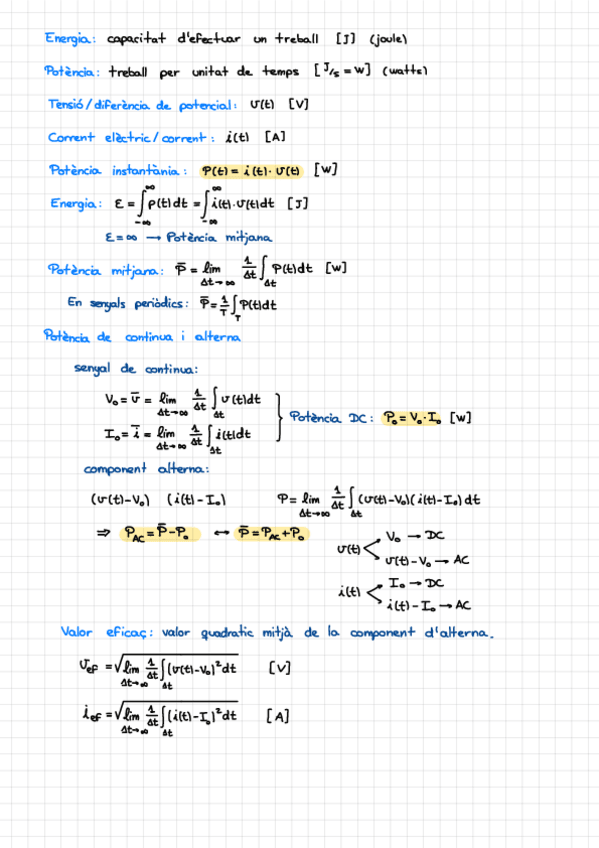 Energia: capacitat d'efectuar un treball [J] (joule)
Potència: treball per unitat de temps [J/s = W] (watts)
Tensió/diferència de potencial: v(t) [V]
Corrent elèctric/corrent: i(t) [A]
Potència instantània: P(t) = i(t)·v(t) [W]
Energia: ε = ∫_{-∞}^{∞} p(t)dt = ∫_{-∞}^{∞} i(t)·v(t)dt [J]
ε = ∞ → Potència mitjana
Potència mitjana: P̄ = lim_{Δt→∞} 1/Δt ∫_{Δt} P(t)dt [W]
En senyals periòdics: P̄ = 1/T ∫_T P(t)dt
Potència de continua i alterna
senyal de continua:
V₀ = v̄ = lim_{Δt→∞} 1/Δt ∫_{Δt} v(t)dt
I₀ = ī = lim_{Δt→∞} 1/Δt ∫_{Δt} i(t)dt
Potència DC: P₀ = V₀·I₀ [W]
component alterna:
(v(t)-V₀) (i(t)-I₀) P = lim_{Δt→∞} 1/Δt ∫_{Δt} (v(t)-V₀)(i(t)-I₀)dt
⇒ P_AC = P̄ - P₀ ↔ P̄ = P_AC + P₀
v(t) < V₀ → DC
v(t)-V₀ → AC
i(t) < I₀ → DC
i(t)-I₀ → AC
Valor eficaç: valor quadratic mitjà de la component d'alterna.
v_ef = √(lim_{Δt→∞} 1/Δt ∫_{Δt} (v(t)-V₀)² dt) [V]
i_ef = √(lim_{Δt→∞} 1/Δt ∫_{Δt} (i(t)-I₀)² dt) [A]